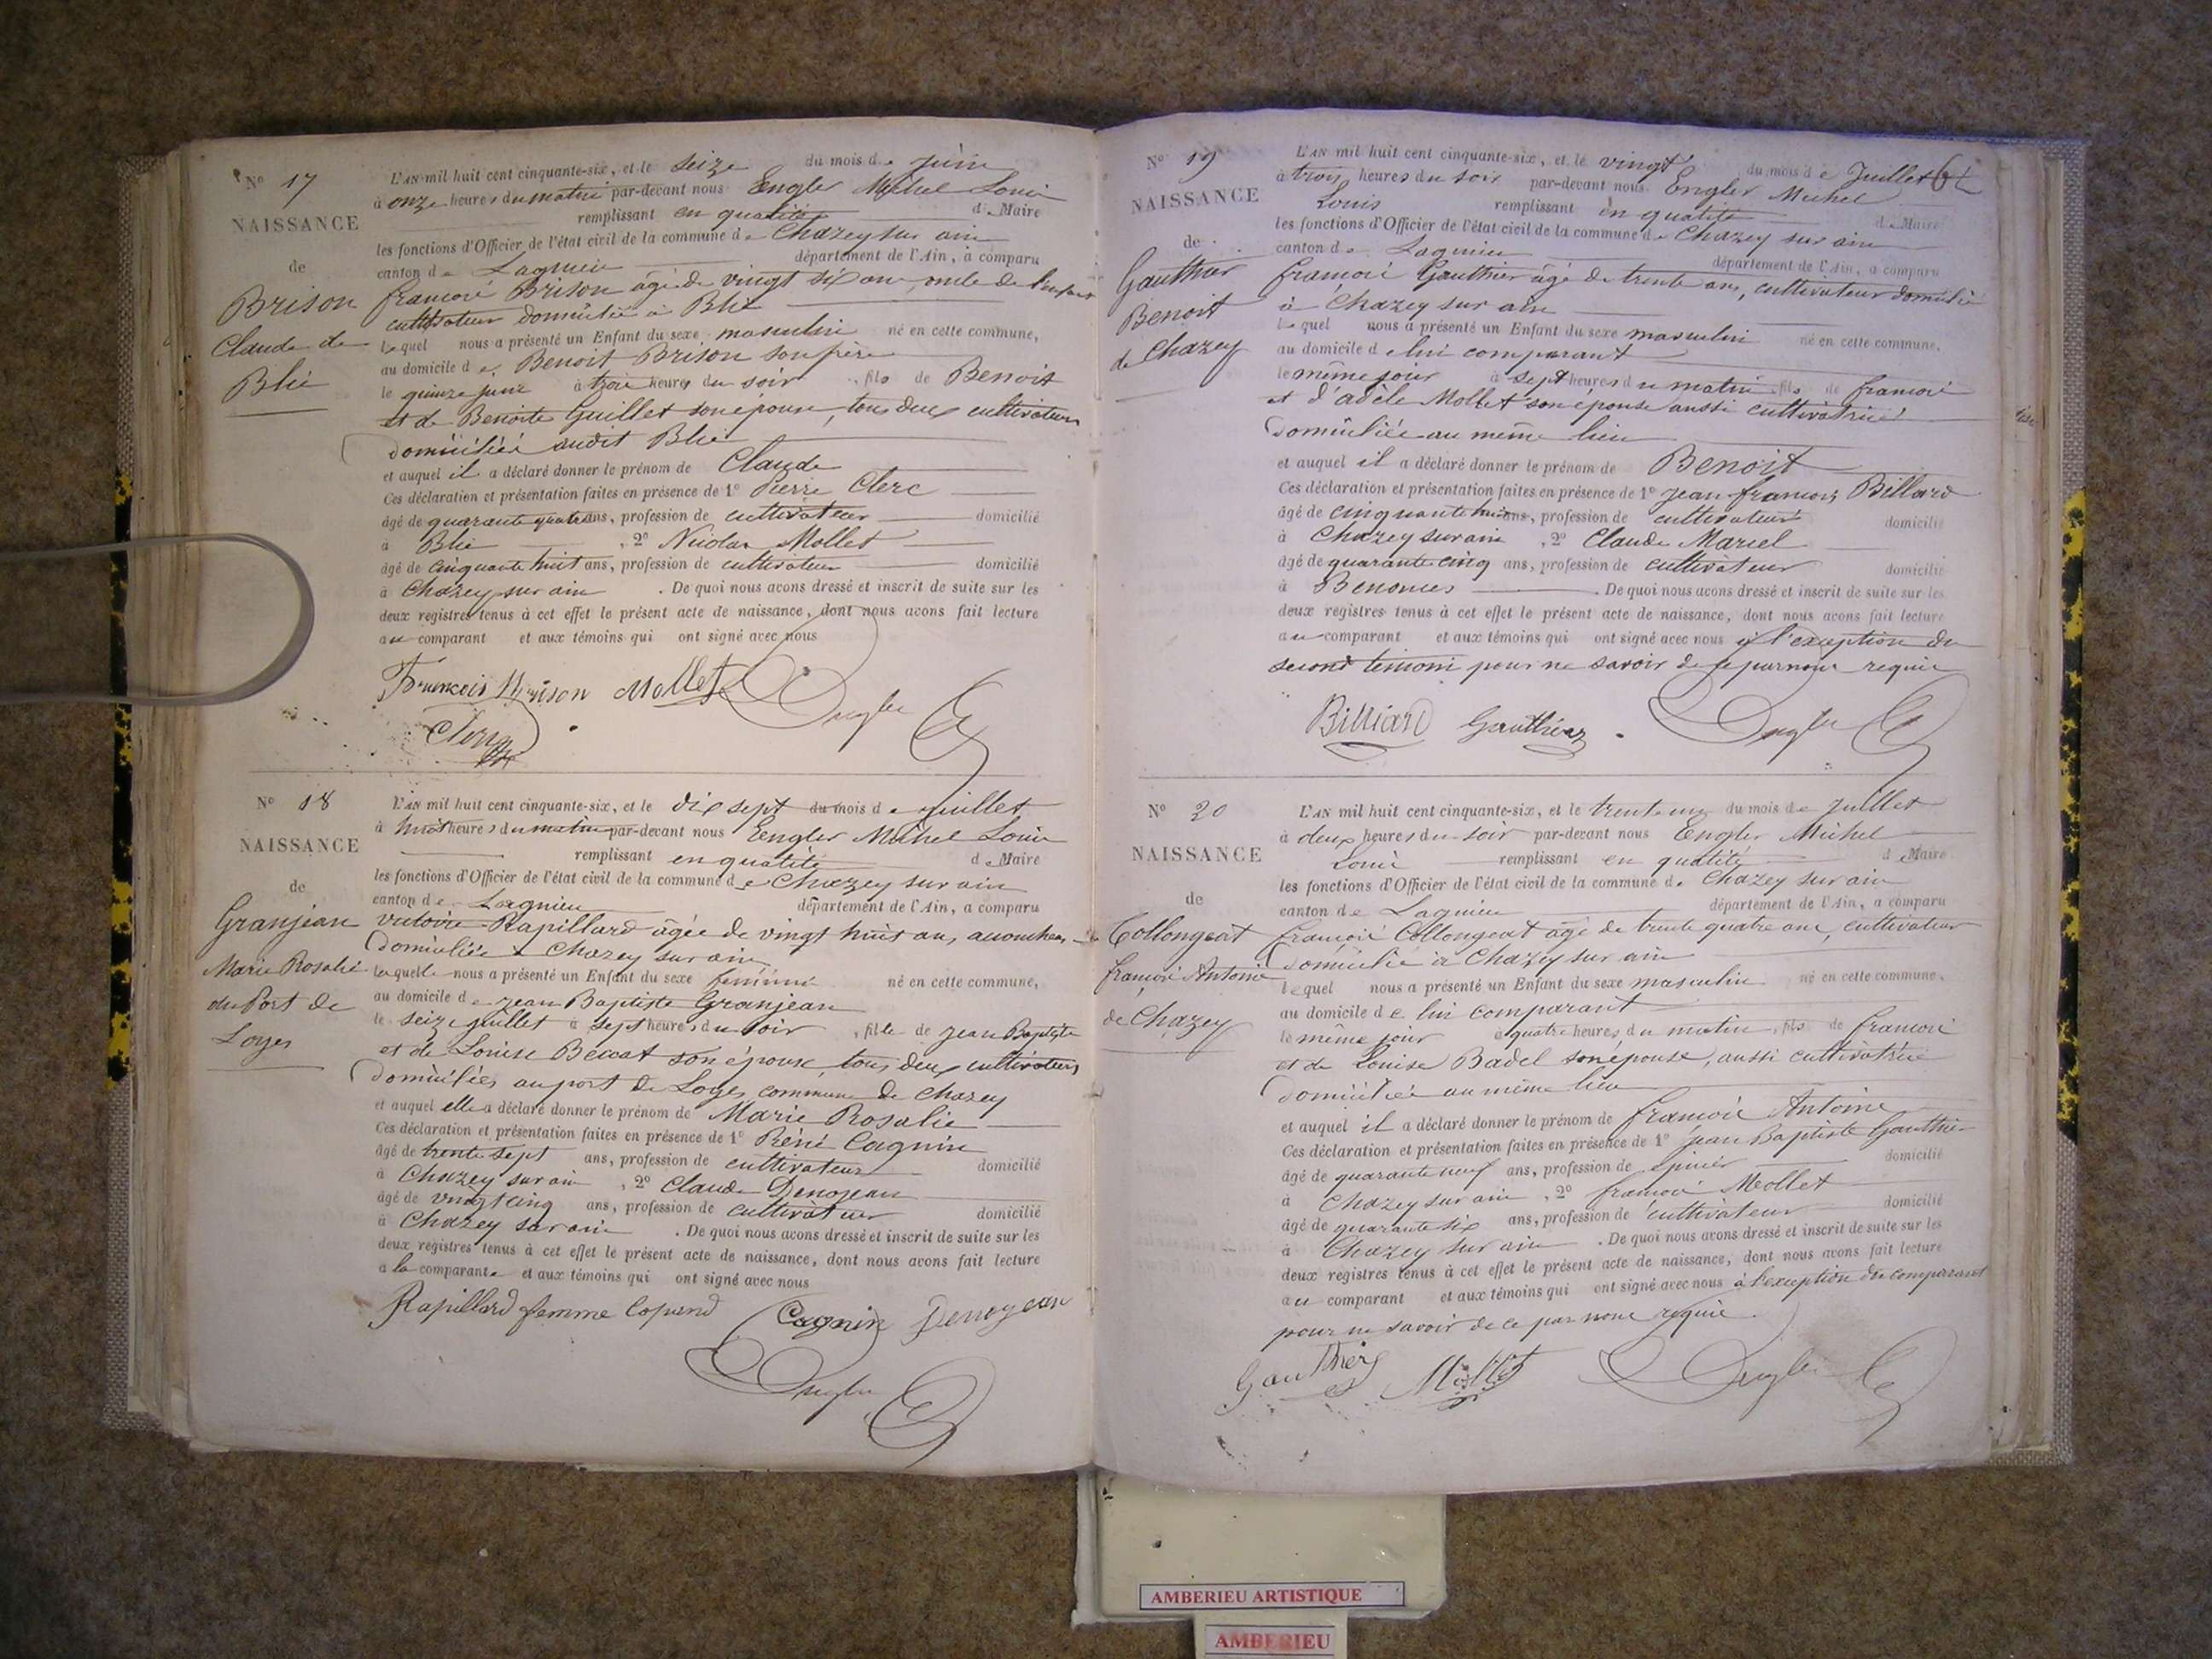 N° 17
NAISSANCE
de
Brison
Claude de
Blie
L'AN mil huit cent cinquante-six, et le seize du mois de juin
à onze heures du matin par-devant nous Engler Michel Louis
remplissant en qualité de Maire
les fonctions d'Officier de l'état civil de la commune de Chazey sur ain
canton de Lagnieu département de l'Ain, a comparu
françois Brison âgé de vingt six ans, oncle de l'enfant
cultivateur domicilié à Blie
lequel nous a présenté un Enfant du sexe masculin né en cette commune,
au domicile de Benoit Brison son frère
le quinze juin à trois heures du soir, fils de Benoit
et de Benoite Guillet son épouse, tous deux cultivateurs
domiciliés audit Blie
et auquel il a déclaré donner le prénom de Claude
Ces déclaration et présentation faites en présence de 1° Pierre Clerc
âgé de quarante quatre ans, profession de cultivateur domicilié
à Blie, 2° Nicolas Mollet
âgé de cinquante huit ans, profession de cultivateur domicilié
à Chazey sur ain. De quoi nous avons dressé et inscrit de suite sur les
deux registres tenus à cet effet le présent acte de naissance, dont nous avons fait lecture
au comparant et aux témoins qui ont signé avec nous
François Brison Mollet Engler
Clerc
N° 18
NAISSANCE
de
Granjean
Marie Rosalie
du Port de
Loyes
L'AN mil huit cent cinquante-six, et le dix sept du mois de juillet
à huit heures du matin par-devant nous Engler Michel Louis
remplissant en qualité de Maire
les fonctions d'Officier de l'état civil de la commune de Chazey sur ain
canton de Lagnieu département de l'Ain, a comparu
victoire Rapillard âgée de vingt huit ans, accoucheuse
domiciliée à Chazey sur ain
laquelle nous a présenté un Enfant du sexe féminin né en cette commune,
au domicile de jean Baptiste Granjean
le seize juillet à sept heures du soir, fille de jean Baptiste
et de Louise son épouse, tous deux cultivateurs
domiciliés au port de Loyes commune de Chazey
et auquel elle a déclaré donner le prénom de Marie Rosalie
Ces déclaration et présentation faites en présence de 1° Réné Cagnin
âgé de trente sept ans, profession de cultivateur domicilié
à Chazey sur ain, 2° Claude Denojean
âgé de vingt cinq ans, profession de cultivateur domicilié
à Chazey sur ain. De quoi nous avons dressé et inscrit de suite sur les
deux registres tenus à cet effet le présent acte de naissance, dont nous avons fait lecture
a la comparante et aux témoins qui ont signé avec nous
Rapillard femme Cagnin Denojean
Engler
N° 19
NAISSANCE
de
Gauthier
Benoit
de Chazey
L'AN mil huit cent cinquante-six, et le vingt du mois de Juillet
à trois heures du soir par-devant nous Engler Michel
Louis remplissant en qualité de Maire
les fonctions d'Officier de l'état civil de la commune de Chazey sur ain
canton de Lagnieu département de l'Ain, a comparu
françois Gauthier âgé de trente ans, cultivateur domicilié
à Chazey sur ain
lequel nous a présenté un Enfant du sexe masculin né en cette commune,
au domicile de lui comparant
le même jour à sept heures du matin, fils de françois
et d'adèle Mollet son épouse aussi cultivatrice
domiciliée au même lieu
et auquel il a déclaré donner le prénom de Benoit
Ces déclaration et présentation faites en présence de 1° jean françois Billard
âgé de cinquante ans, profession de cultivateur domicilié
à Chazey sur ain, 2° Claude Marcel
âgé de quarante cinq ans, profession de cultivateur domicilié
à Benonces. De quoi nous avons dressé et inscrit de suite sur les
deux registres tenus à cet effet le présent acte de naissance, dont nous avons fait lecture
au comparant et aux témoins qui ont signé avec nous à l'exception du
second témoin pour ne savoir de ce par nous requis
Billiard Gauthier Engler
N° 20
NAISSANCE
de
Collongeat
françois Antoine
de Chazey
L'AN mil huit cent cinquante-six, et le trente un du mois de juillet
à deux heures du soir par-devant nous Engler Michel
Louis remplissant en qualité de Maire
les fonctions d'Officier de l'état civil de la commune de Chazey sur ain
canton de Lagnieu département de l'Ain, a comparu
françois Collongeat âgé de trente quatre ans, cultivateur
domicilié à Chazey sur ain
lequel nous a présenté un Enfant du sexe masculin né en cette commune,
au domicile de lui comparant
le même jour à quatre heures du matin, fils de françois
et de Louise Badel son épouse, aussi cultivatrice
domiciliée au même lieu
et auquel il a déclaré donner le prénom de françois Antoine
Ces déclaration et présentation faites en présence de 1° jean Baptiste Gauthier
âgé de quarante neuf ans, profession de épicier domicilié
à Chazey sur ain, 2° françois Mollet
âgé de quarante six ans, profession de cultivateur domicilié
à Chazey sur ain. De quoi nous avons dressé et inscrit de suite sur les
deux registres tenus à cet effet le présent acte de naissance, dont nous avons fait lecture
au comparant et aux témoins qui ont signé avec nous à l'exception du comparant
pour ne savoir de ce par nous requis.
Gauthier Mollet Engler
AMBERIEU ARTISTIQUE
AMBERIEU